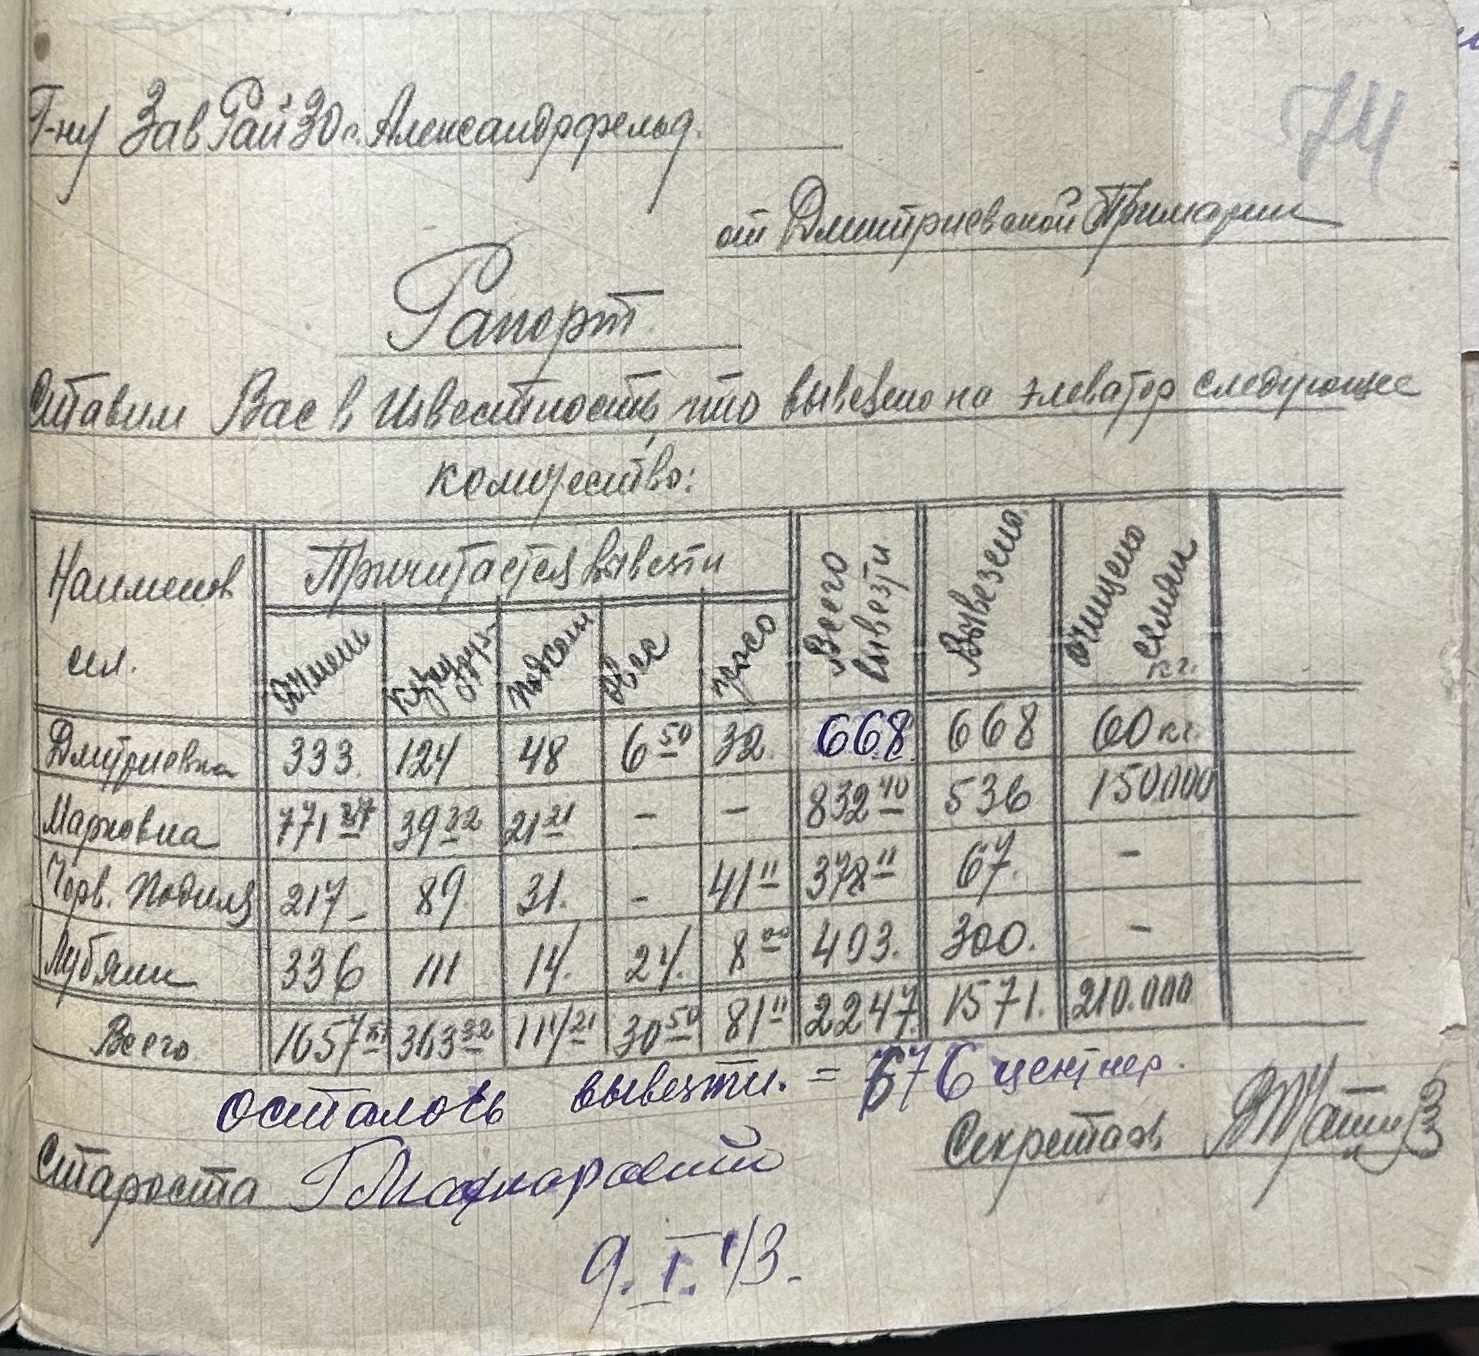 74
Г-ну Зав Рай ЗО с. Александрфельд.
от Дмитриевской Примарии
Рапорт
Ставим Вас в известность, что вывезено на элеватор следующее
количество:
Наименов сел. Причитается вывезти Всего вывезти Вывезено. очищено семян кг.
Ячмень Кукуруз. подсолн Овес просо
Дмитриевка 333. 124 48 6 50 32. 668 668 60 кг.
Марковка 771 87 39 32 21 21 - - 832 40 536 150.000
Черв. Подиля 217 - 89. 31. - 41 11 378 11 67. -
Лубянки 336 111 14. 24. 8 00 493. 300. -
Всего 1657 363 32 114 21 30 50 81 11 2247. 1571. 210.000
осталось вывезти. = 676 центнер.
Староста Секретарь
9. I. 43.